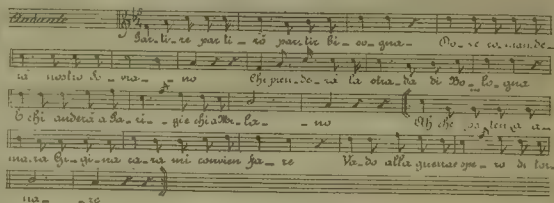 Andante
Par-ti-re par-ti-rò partir bi-so-gna Do-ve coman-de-
rà nostro So-vra-no Chi pren-de-rà la stra-da di Bo-lo-gna
E chi anderà a Pa-ri-gi e chi a Mi-la-no Ah che par-ten-za a-
ma-ra Gi-gi-na ca-ra mi convien fa-re Va-do alla guerra e spe-ro di tor-
na-re